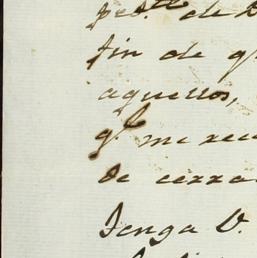 de
fin de q.e
aquellos,
q.e me reu
de cerra
Tenga V.